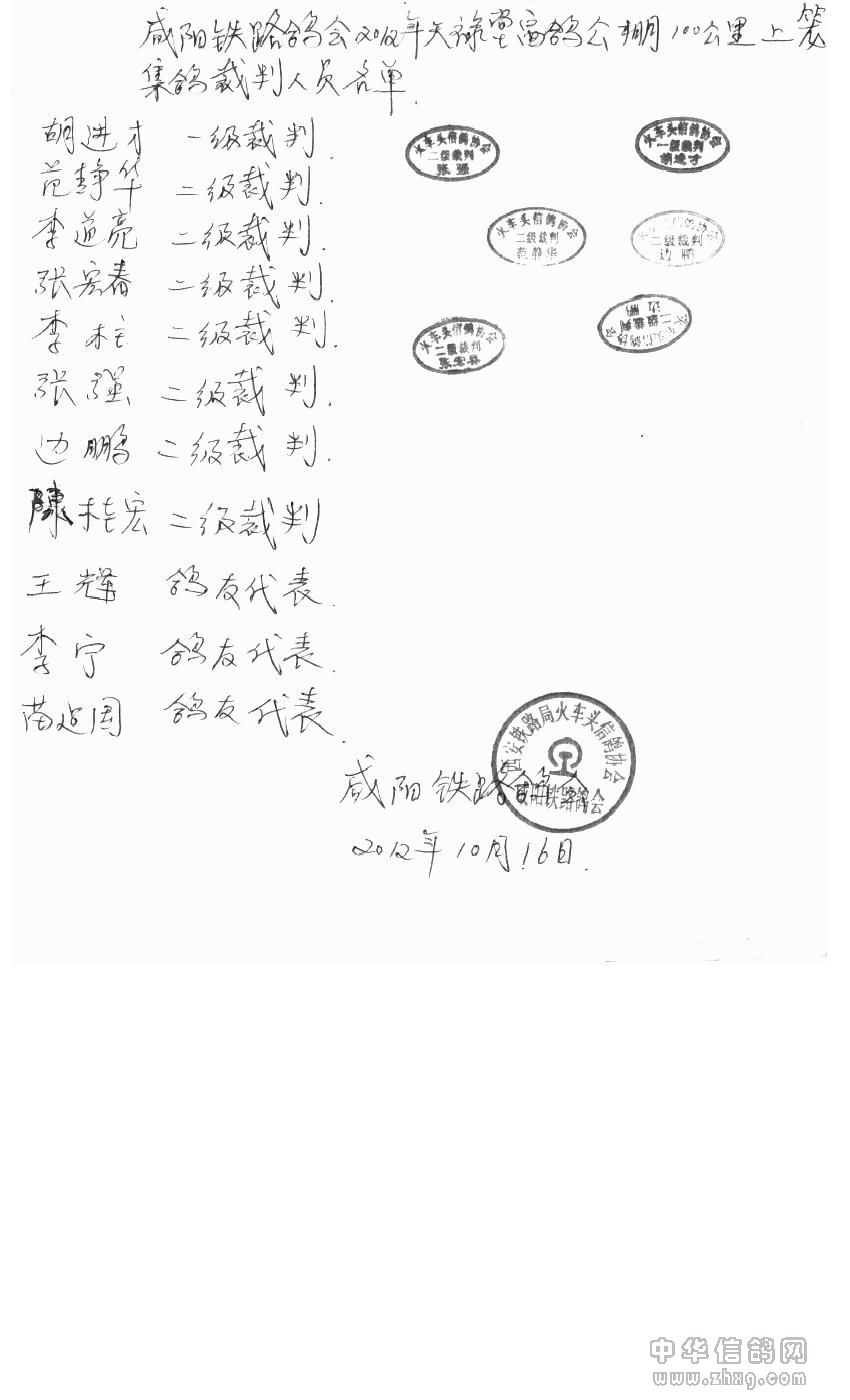 咸阳铁路鸽会2012年天禄堂赛鸽公棚100公里上笼
集鸽裁判人员名单.
胡进才 一级裁判.
范静华 二级裁判.
李道亮 二级裁判.
张宏春 二级裁判.
李柱 二级裁判.
张强 二级裁判.
边鹏 二级裁判.
陳桂宏 二级裁判
王辉 鸽友代表.
李宁 鸽友代表.
苗 周 鸽友代表.
火车头信鸽协会
二级裁判
张强
火车头信鸽协会
一级裁判
胡进才
火车头信鸽协会
二级裁判
范静华
火车头信鸽协会
二级裁判
边鹏
火车头信鸽协会
二级裁判
张宏春
火车头信鸽协会
二级裁判
边鹏
西安铁路局火车头信鸽协会
咸阳铁路鸽会
咸阳铁路鸽会
2012年10月16日.
中华信鸽网
www.zhxg.com